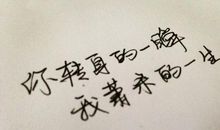 你转身的一瞬
我萧条的一生